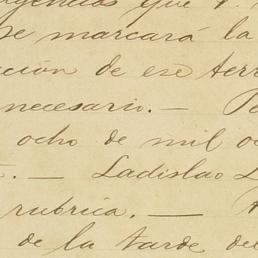 que
se marcará la
ción de ese terr
necesario. — Po
ocho de mil o
. — Ladislao L
rubrica. —
de la tarde del